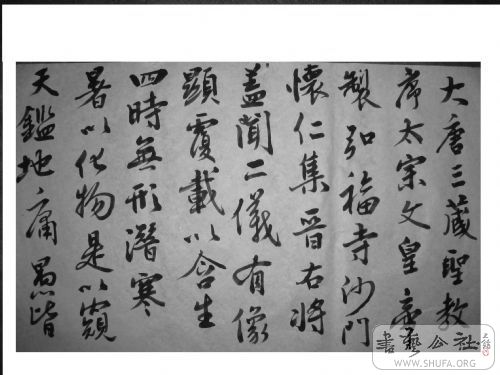 大唐三藏聖教
序太宗文皇帝
製弘福寺沙門
懷仁集晉右將
蓋聞二儀有像
顯覆載以含生
四時無形潛寒
暑以化物是以窺
天鑑地庸愚皆
書藝公社
WWW.SHUFA.ORG